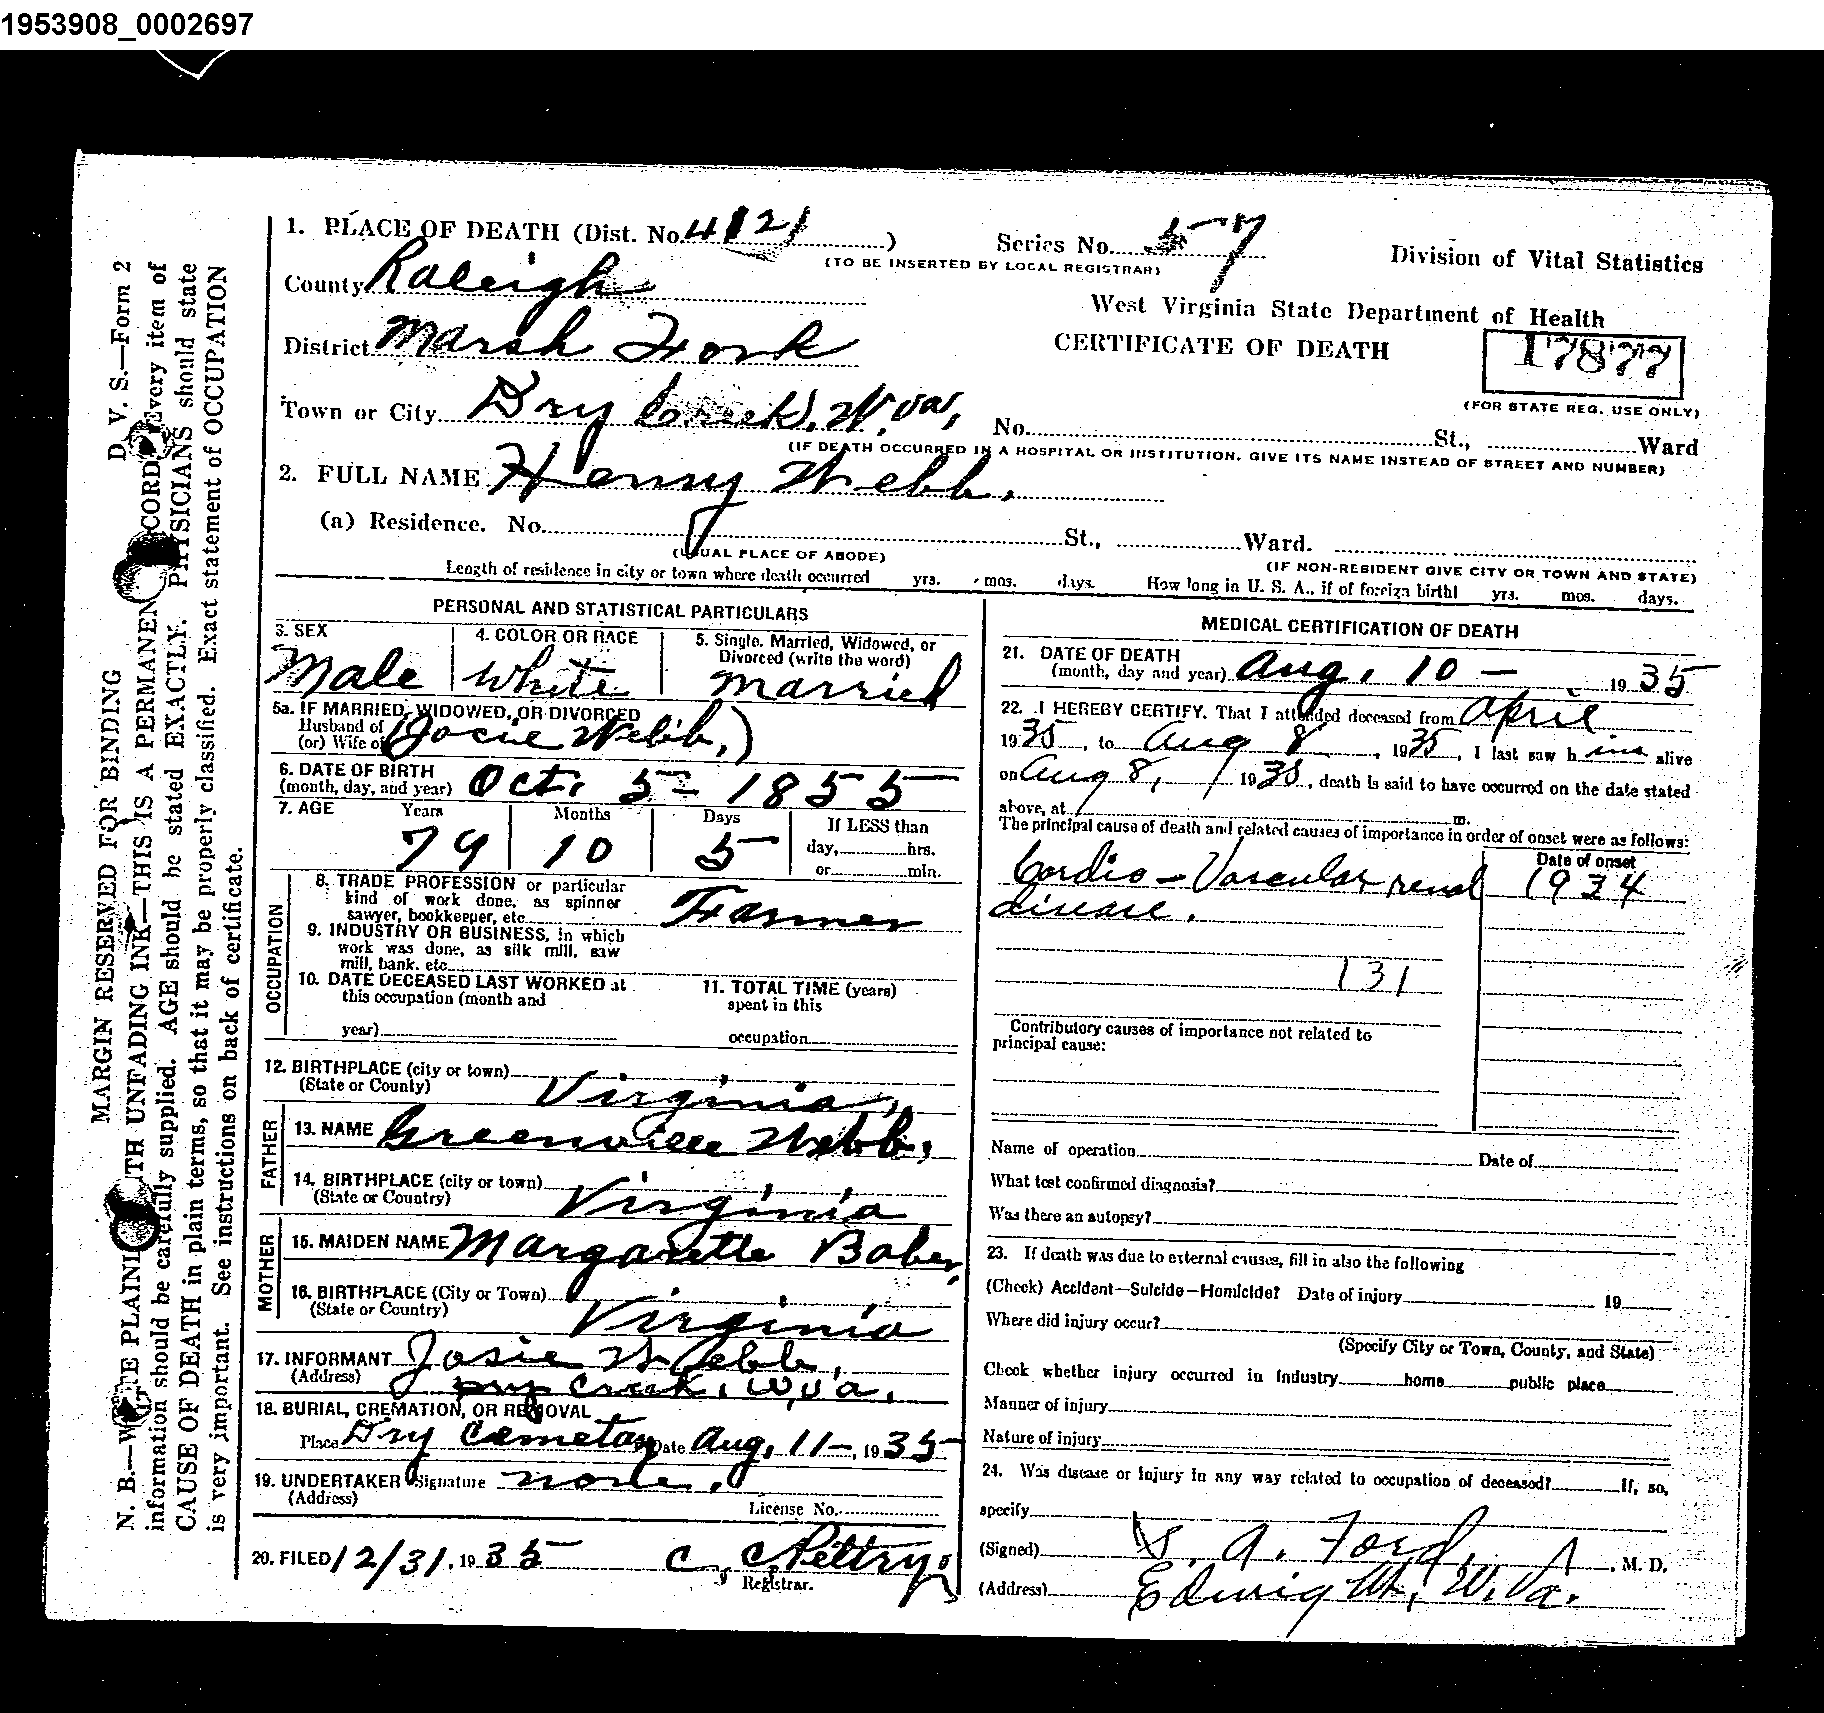 1953908_0002697
MARGIN RESERVED FOR BINDING D. V. S.—Form 2
N. B.—WRITE PLAINLY WITH UNFADING INK—THIS IS A PERMANENT RECORD. Every item of
information should be carefully supplied. AGE should be stated EXACTLY. PHYSICIANS should state
CAUSE OF DEATH in plain terms, so that it may be properly classified. Exact statement of OCCUPATION
is very important. See instructions on back of certificate.
1. PLACE OF DEATH (Dist. No. 4121) Series No. 57 Division of Vital Statistics
(TO BE INSERTED BY LOCAL REGISTRAR)
County Raleigh West Virginia State Department of Health
District Marsh Fork CERTIFICATE OF DEATH 17877
(FOR STATE REG. USE ONLY)
Town or City Dry Creek, W.Va, No. St., Ward
(IF DEATH OCCURRED IN A HOSPITAL OR INSTITUTION, GIVE ITS NAME INSTEAD OF STREET AND NUMBER)
2. FULL NAME Henry Webb.
(a) Residence. No. St., Ward.
(USUAL PLACE OF ABODE) (IF NON-RESIDENT GIVE CITY OR TOWN AND STATE)
Length of residence in city or town where death occurred yrs. mos. days. How long in U. S. A., if of foreign birth? yrs. mos. days.
PERSONAL AND STATISTICAL PARTICULARS
3. SEX 4. COLOR OR RACE 5. Single, Married, Widowed, or
Divorced (write the word)
Male White Married
5a. IF MARRIED, WIDOWED, OR DIVORCED
Husband of
(or) Wife of (Josie Webb,)
6. DATE OF BIRTH
(month, day, and year) Oct. 5- 1855
7. AGE Years Months Days If LESS than
79 10 5 day, hrs.
or min.
OCCUPATION
8. TRADE PROFESSION or particular
kind of work done, as spinner
sawyer, bookkeeper, etc. Farmer
9. INDUSTRY OR BUSINESS, in which
work was done, as silk mill, saw
mill, bank, etc.
10. DATE DECEASED LAST WORKED at 11. TOTAL TIME (years)
this occupation (month and spent in this
year) occupation
12. BIRTHPLACE (city or town)
(State or County) Virginia,
FATHER
13. NAME Greenville Webb,
14. BIRTHPLACE (city or town)
(State or Country) Virginia
MOTHER
15. MAIDEN NAME Margarette Baber,
16. BIRTHPLACE (City or Town)
(State or Country) Virginia
17. INFORMANT Josie Webb,
(Address) Dry Creek, W,Va,
18. BURIAL, CREMATION, OR REMOVAL
Place Dry Cemetary Date Aug, 11-, 1935
19. UNDERTAKER Signature none.
(Address) License No.
20. FILED 12/31, 1935 C, C Pettry,
Registrar.
MEDICAL CERTIFICATION OF DEATH
21. DATE OF DEATH
(month, day and year) Aug, 10 - 1935
22. I HEREBY CERTIFY, That I attended deceased from April
1935, to Aug 8, 1935, I last saw him alive
on Aug 8, 1935, death is said to have occurred on the date stated
above, at m.
The principal cause of death and related causes of importance in order of onset were as follows:
Date of onset
Cardio-Vascular renal 1934
disease.
131
Contributory causes of importance not related to
principal cause:
Name of operation Date of
What test confirmed diagnosis?
Was there an autopsy?
23. If death was due to external causes, fill in also the following
(Check) Accident—Suicide—Homicide? Date of injury 19
Where did injury occur?
(Specify City or Town, County, and State)
Check whether injury occurred in Industry home public place
Manner of injury
Nature of injury
24. Was disease or injury in any way related to occupation of deceased? If, so,
specify
(Signed) S. A. Ford, M. D.
(Address) Edwight, W.Va.